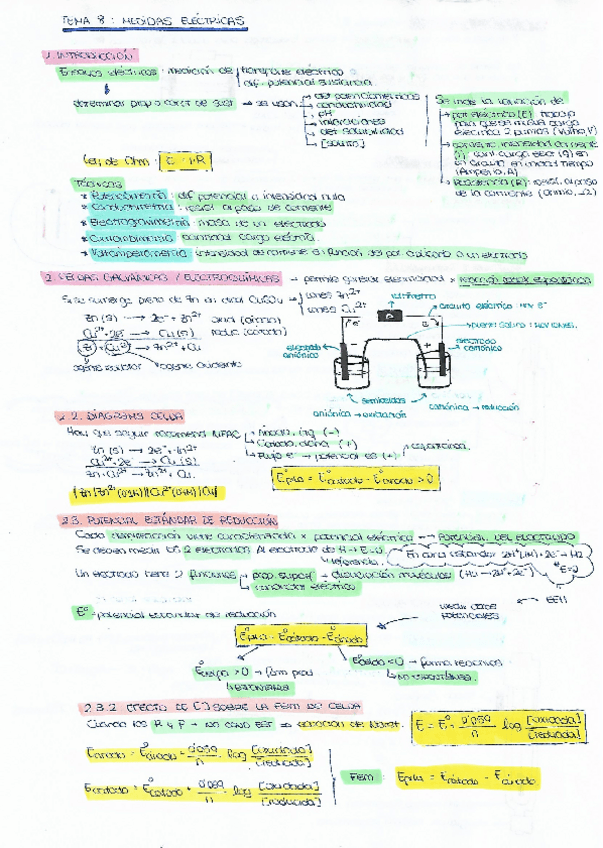 TEMA 8 : MEDIDAS ELÉCTRICAS
1. INTRODUCCIÓN
Ensayos eléctricos : medición de transporte eléctrico
dif. potencial sustancia
determinar prop o caract de sust → se usan
dif potenciométricos
conductividad
pH
interacciones
det solubilidad
[soluto]
Se mide la variación de
Ley de Ohm : E = I·R
pot eléctrico (E) trabajo
para que se mueva carga
eléctrica 2 puntos (Voltio, V)
corriente, intensidad corriente
(I) cant carga eléct (q) en
un circuito en unidad tiempo
(Amperio, A)
Resistencia (R) : resist. al paso
de la corriente (ohmio, Ω)
Técnicas
* Potenciometría : dif potencial a intensidad nula
* Conductimetría : resist al paso de corriente
* Electrogravimetría : masa de un electrodo
* Culombimetría : cantidad carga eléctrica
* Voltamperometría : intensidad de corriente en función del pot aplicado a un electrodo
2. CELDAS GALVÁNICAS / ELECTROQUÍMICAS → permite generar electricidad x reacción redox espontánea
Si se sumerge placa de Zn en disol CuSO4 → iones Zn2+
iones Cu2+
voltímetro
circuito eléctrico mov e-
Zn (s) → 2e- + Zn2+
Cu2+ + 2e- → Cu (s)
Zn + Cu2+ → Zn2+ + Cu
agente reductor
agente oxidante
puente salino : mov iones.
electrodo
aniónico
electrodo
catiónico
semiceldas
aniónica → oxidación
catiónica → reducción
2.2. DIAGRAMA CELDA
Hay que seguir recomend IUPAC
Ánodo, izq (-)
Cátodo, dcha (+)
Flujo e- → potencial es (+)
espontánea.
Zn (s) → 2e- + Zn2+
Cu2+ + 2e- → Cu (s)
Zn + Cu2+ → Zn2+ + Cu
E°pila = E°cátodo - E°ánodo > 0
|Zn|Zn2+ (0'1M)||Cu2+ (0'1M)|Cu|
2.3. POTENCIAL ESTÁNDAR DE REDUCCIÓN
Cada semirreacción viene caracterizada x potencial eléctrico → POTENCIAL DEL ELECTRODO
Se deben medir los 2 electrones. Al electrodo de H → E=0
referencia.
En cond estándar 2H+ (1M) + 2e- → H2
E°=0
Un electrodo tiene 2 funciones → prop. superf → disociación moléculas (H2 → 2H+ + 2e-)
conductor eléctrico
E° - potencial estándar de reducción
medir otros
potenciales
EEH
E°pila = E°cátodo - E°ánodo
→ forma pilas
espontánea
→ forma reactivos
No espontánea.
2.3.2 EFECTO DE [ ] SOBRE LA FEM DE CELDA
Cuando los R y P → NO COND EST ⇒ ecuación de Nerst.
E = E° - 0'059/n log [oxidada]/[reducida]
Eánodo = E°ánodo + 0'059/n · log [oxidado]/[reducido]
Ecátodo = E°cátodo + 0'059/n · log [oxidada]/[reducida]
Fem : Epila = Ecátodo - Eánodo